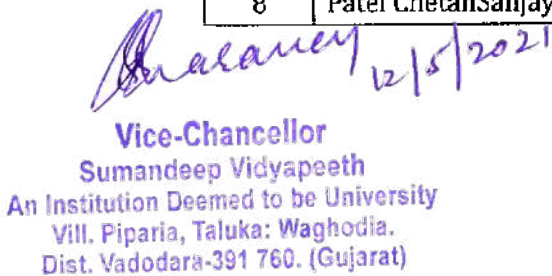 8 Patel ChetanSanjay
12/5/2021
Vice-Chancellor
Sumandeep Vidyapeeth
An Institution Deemed to be University
Vill. Piparia, Taluka: Waghodia.
Dist. Vadodara-391 760. (Gujarat)